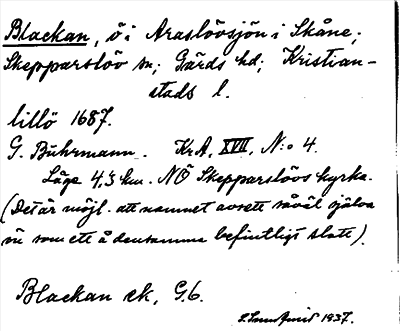 Blackan, ö i Araslövsjön i Skåne;
Skepparslöv sn; Gärds hd; Kristian-
stads l.
lillö 1687.
G. Buhrmann. KrA, XVII, N:o 4.
Läge 4,3 km. NÖ Skepparslövs kyrka.
(Det är möjl. att namnet avsett såväl själva
ön som ett å densamma befintligt slott).
Blackan ek, G.6.
1937.